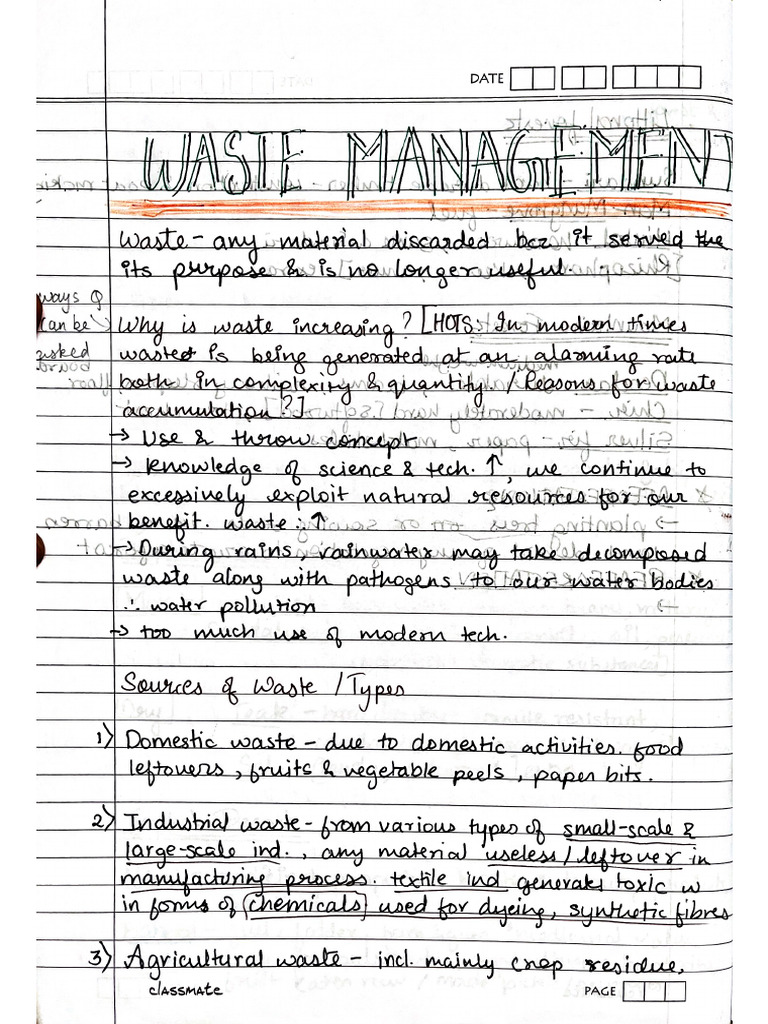 DATE
WASTE MANAGEMENT
Waste - any material discarded bcz it served the
its purpose & is no longer useful.
ways Q
can be
asked
Why is waste increasing? [HOTS: In modern times
waste is being generated at an alarming rate
both in complexity & quantity. / Reasons for waste
accumulation?]
→ Use & throw concept
→ Knowledge of science & tech. ↑, we continue to
excessively exploit natural resources for our
benefit. waste ∴ ↑
→ During rains, rainwater may take decomposed
waste along with pathogens to our water bodies
∴ water pollution
→ too much use of modern tech.
Sources of Waste / Types
1) Domestic waste - due to domestic activities. food
leftovers, fruits & vegetable peels, paper bits.
2) Industrial waste - from various types of small-scale &
large-scale ind., any material useless/leftover in
manufacturing process. textile ind generates toxic w
in forms of (chemicals) used for dyeing, synthetic fibres
3) Agricultural waste - incl. mainly crop residue,
classmate
PAGE